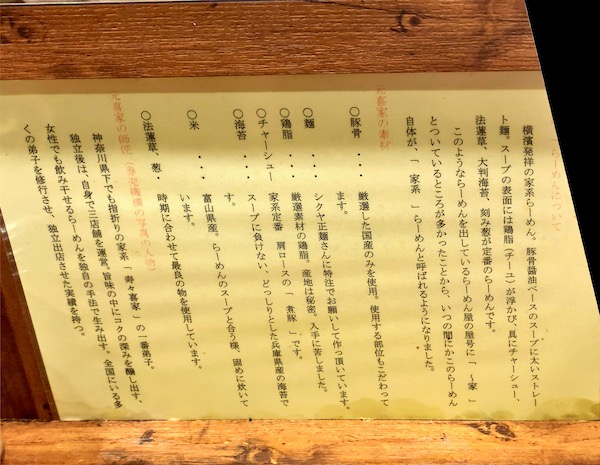 らーめんについて
横濱発祥の家系らーめん。豚骨醤油ベースのスープに太いストレー
ト麺。スープの表面には鶏脂(チーユ)が浮かび、具にチャーシュー、
法蓮草、大判海苔、刻み葱が定番のらーめんです。
このようならーめんを出しているらーめん屋の屋号に「〜家」
とついているところが多かったことから、いつの間にかこのらーめん
自体が、「家系」らーめんと呼ばれるようになりました。
元喜家の素材
〇豚骨 ・・・ 厳選した国産のみを使用。使用する部位もこだわって
ます。
〇麺 ・・・ シクヤ正麺さんに特注でお願いして作っ頂いています。
〇鶏脂 ・・・ 厳選素材の鶏脂。産地は秘密。入手に苦しました。
〇チャーシュー 家系定番 肩ロースの「煮豚」です。
〇海苔 ・・・ スープに負けない、どっしりとした兵庫県産の海苔で
す。
〇米 ・・・ 富山県産。らーめんのスープと合う様、固めに炊いて
います。
〇法蓮草、葱・ 時期に合わせて最良の物を使用しています。
元喜家の師匠(券売機横の写真の人物)
神奈川県下でも指折りの家系「寿々喜家」の一番弟子。
独立後は、自身で三店舗を運営。旨味の中にコクの深みを醸し出す、
女性でも飲み干せるらーめんを独自の手法で生み出す。全国にいる多
くの弟子を修行させ、独立出店させた実績を持つ。